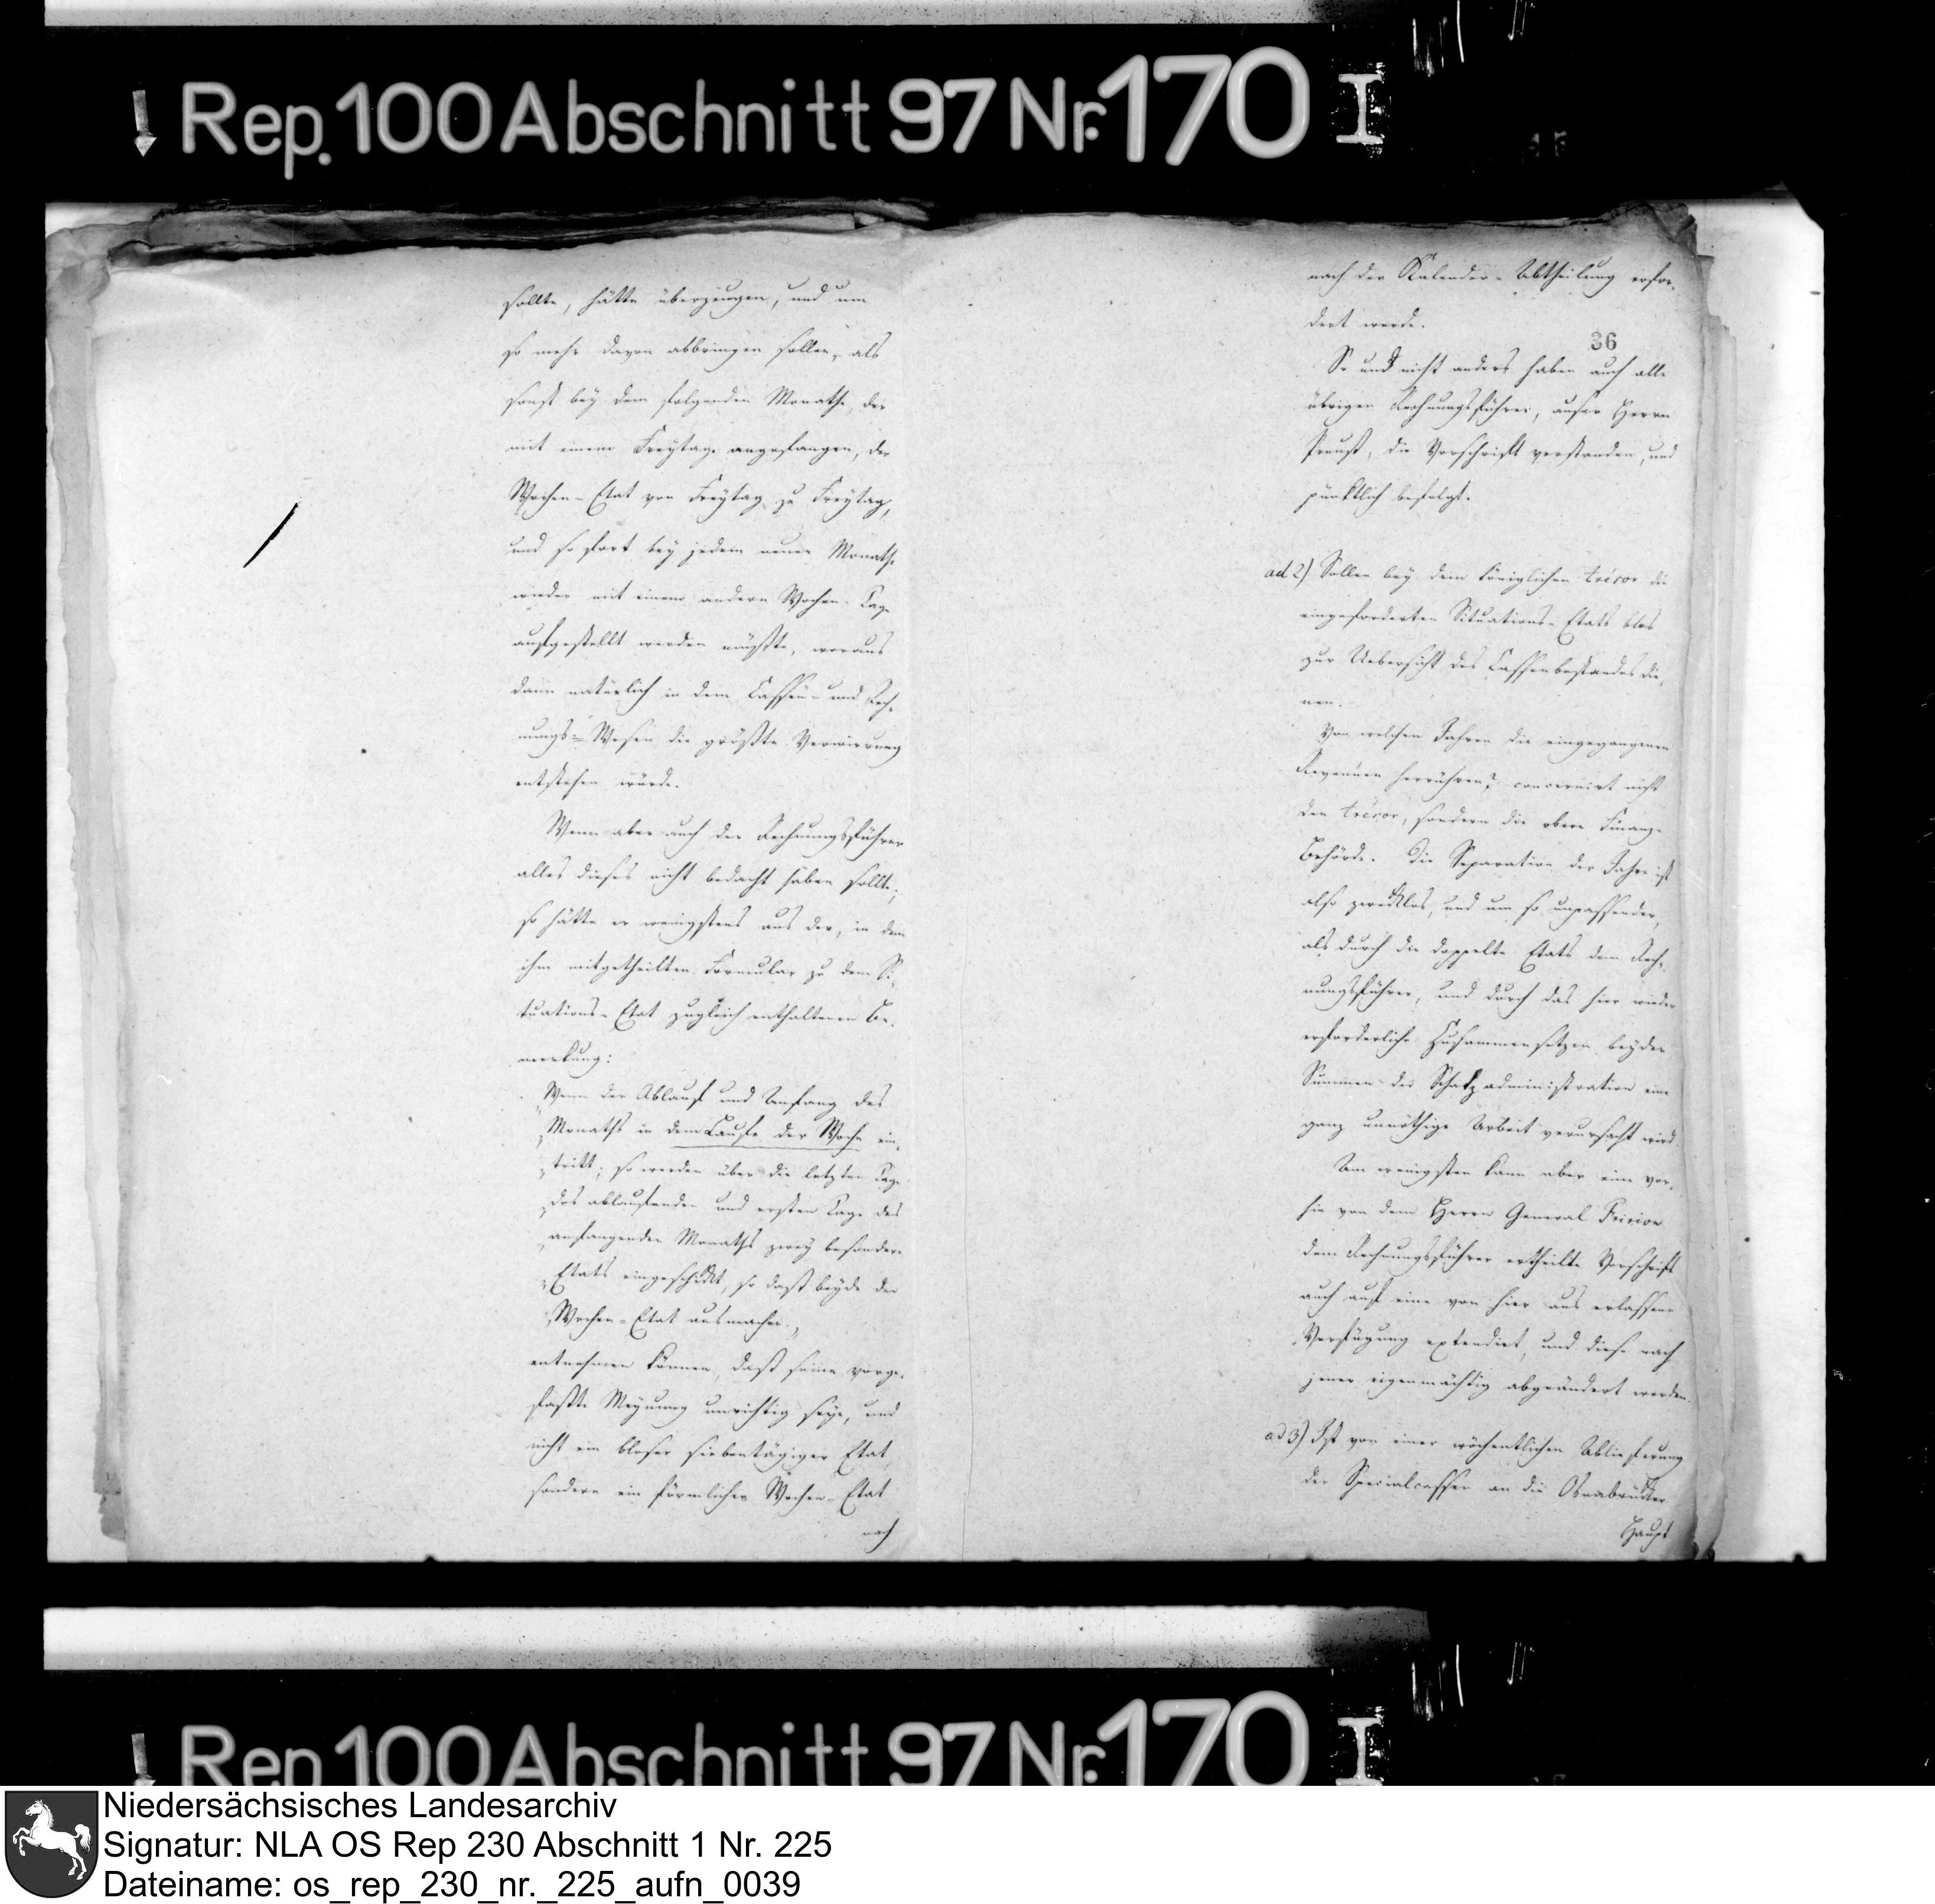 Rep. 100 Abschnitt 97 Nr. 170 I
sollte, hätte überzeugen, und um
so mehr davon abbringen sollen, als
sonst bey dem folgenden Monathe, der
mit einem Freytage angefangen, der
Wochen-Etat von Freytag zu Freytag,
und so fort bey jedem neuen Monathe
wieder mit einem andern Wochen-Tage
aufgestellt werden müßte, woraus
dann natürlich in dem Cassen- und Rech-
nungs-Wesen die größte Verwirrung
entstehen würde.
Wenn aber auch der Rechnungsführer
alles dieses nicht bedacht haben sollte,
so hätte er wenigstens aus der, in dem
ihm mitgetheilten Formular zu dem Si-
tuations-Etat zugleich enthaltenen Be-
merkung:
„Wenn der Ablauf und Anfang des
„Monaths in dem Laufe der Woche ein-
„tritt; so werden über die letzten Tage
„des ablaufenden und ersten Tage des
„anfangenden Monaths zwey besondere
„Etats eingeschickt, so daß beyde den
„Wochen-Etat ausmachen.„
entnehmen können, daß seine vorge-
faßte Meynung unrichtig seye, und
nicht ein bloser siebentägiger Etat,
sondern ein förmlicher Wochen-Etat
nach
nach der Kalender-Abtheilung erfor-
dert werde.
36
So und nicht anders haben auch alle
übrigen Rechnungsführer, außer Herrn
die Vorschrift verstanden, und
pünktlich befolgt.
ad 2) Sollen bey dem königlichen trésor die
eingeforderten Situations-Etats blos
zur Uebersicht des Cassenbestandes die-
nen.
Von welchen Jahren die eingegangenen
Revenüen herrühren? concernirt nicht
den trésor, sondern die obere Finanz-
Behörde. Die Separation der Jahre ist
also zwecklos, und um so unpassender,
als durch die doppelte Etats dem Rech-
nungsführer, und durch das hier wieder
erforderliche Zusammensetzen beyder
Summen der Schatzadministration eine
ganz unnöthige Arbeit verursacht wird.
Am wenigsten kann aber eine vor-
hin von dem Herrn General
dem Rechnungsführer ertheilte Vorschrift
auch auf eine von hier aus erlassene
Verfügung extendirt, und diese nach
jener eigenmächtig abgeändert werden.
ad 3) Ist von einer wöchentlichen Ablieferung
der Specialcassen an die Osnabrücker
Haupt
Rep. 100 Abschnitt 97 Nr. 170 I
Niedersächsisches Landesarchiv
Signatur: NLA OS Rep 230 Abschnitt 1 Nr. 225
Dateiname: os_rep_230_nr._225_aufn_0039